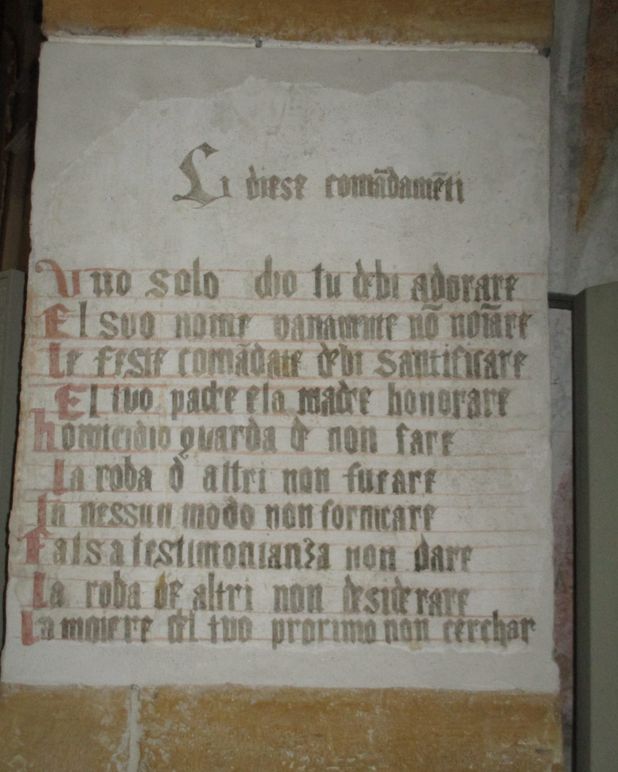 Li diese comādamēti
Uno solo dio tu debi adorare
El suo nome vanamente nō noīare
Le feste comādate debi santificare
El tuo padre e la madre honorare
homicidio guarda de non fare
La roba d altri non furare
In nessun modo non fornicare
Falsa testimonianza non dare
La roba de altri non desiderare
La moiere del tuo proximo non cerchar